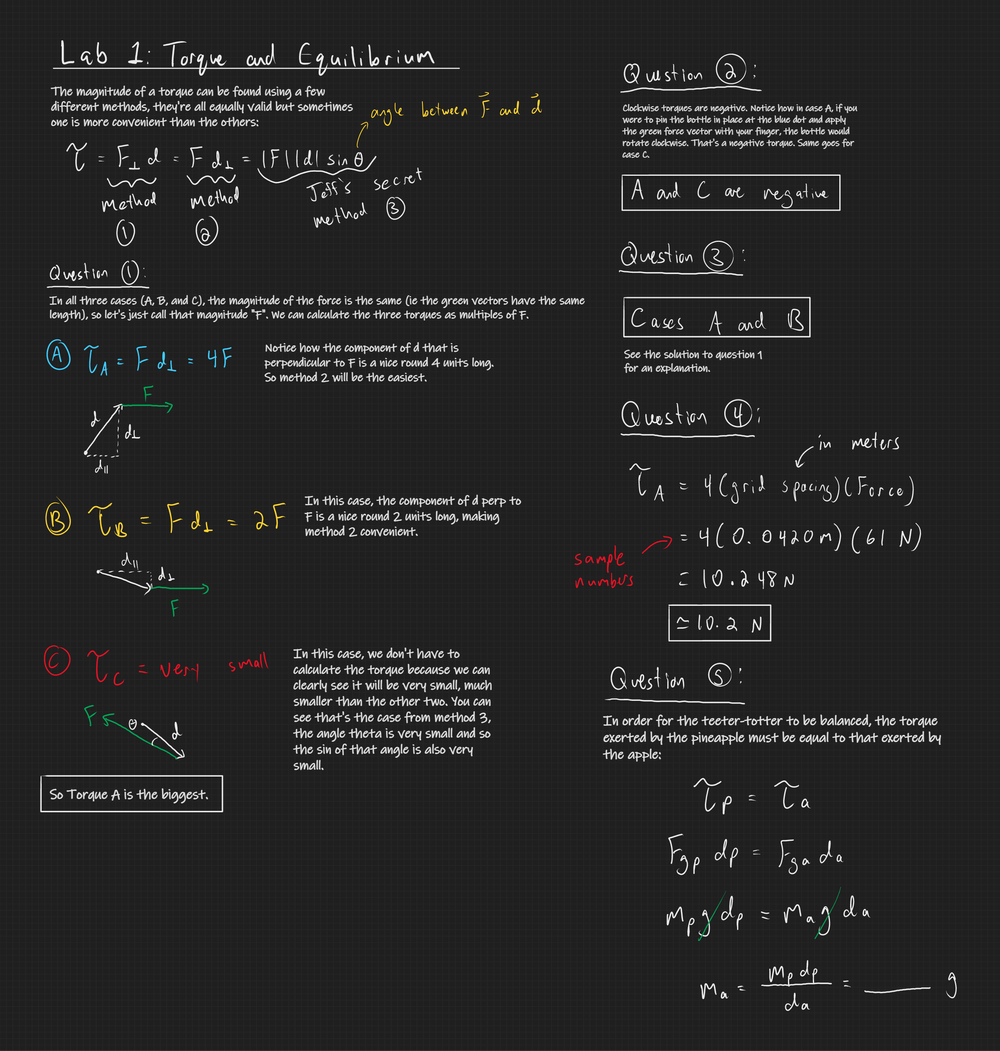 Lab 1: Torque and Equilibrium
The magnitude of a torque can be found using a few
different methods, they're all equally valid but sometimes
one is more convenient than the others:
angle between F⃗ and d⃗
τ = F⊥ d = F d⊥ = |F||d| sin θ
method ① method ② Jeff's secret method ③
Question ①:
In all three cases (A, B, and C), the magnitude of the force is the same (ie the green vectors have the same
length), so let's just call that magnitude "F". We can calculate the three torques as multiples of F.
Ⓐ τ_A = F d⊥ = 4F
Notice how the component of d that is
perpendicular to F is a nice round 4 units long.
So method 2 will be the easiest.
F
d
d⊥
d||
Ⓑ τ_B = F d⊥ = 2F
In this case, the component of d perp to
F is a nice round 2 units long, making
method 2 convenient.
d||
d⊥
F
Ⓒ τ_C = very small
In this case, we don't have to
calculate the torque because we can
clearly see it will be very small, much
smaller than the other two. You can
see that's the case from method 3,
the angle theta is very small and so
the sin of that angle is also very
small.
F
θ
d
So Torque A is the biggest.
Question ②:
Clockwise torques are negative. Notice how in case A, if you
were to pin the bottle in place at the blue dot and apply
the green force vector with your finger, the bottle would
rotate clockwise. That's a negative torque. Same goes for
case C.
A and C are negative
Question ③:
Cases A and B
See the solution to question 1
for an explanation.
Question ④:
in meters
τ_A = 4(grid spacing)(Force)
= 4(0.0420m)(61 N)
sample
numbers
= 10.248 N
≃ 10.2 N
Question ⑤:
In order for the teeter-totter to be balanced, the torque
exerted by the pineapple must be equal to that exerted by
the apple:
τ_p = τ_a
F_gp d_p = F_ga d_a
m_p g d_p = m_a g d_a
m_a = m_p d_p / d_a = ____ g